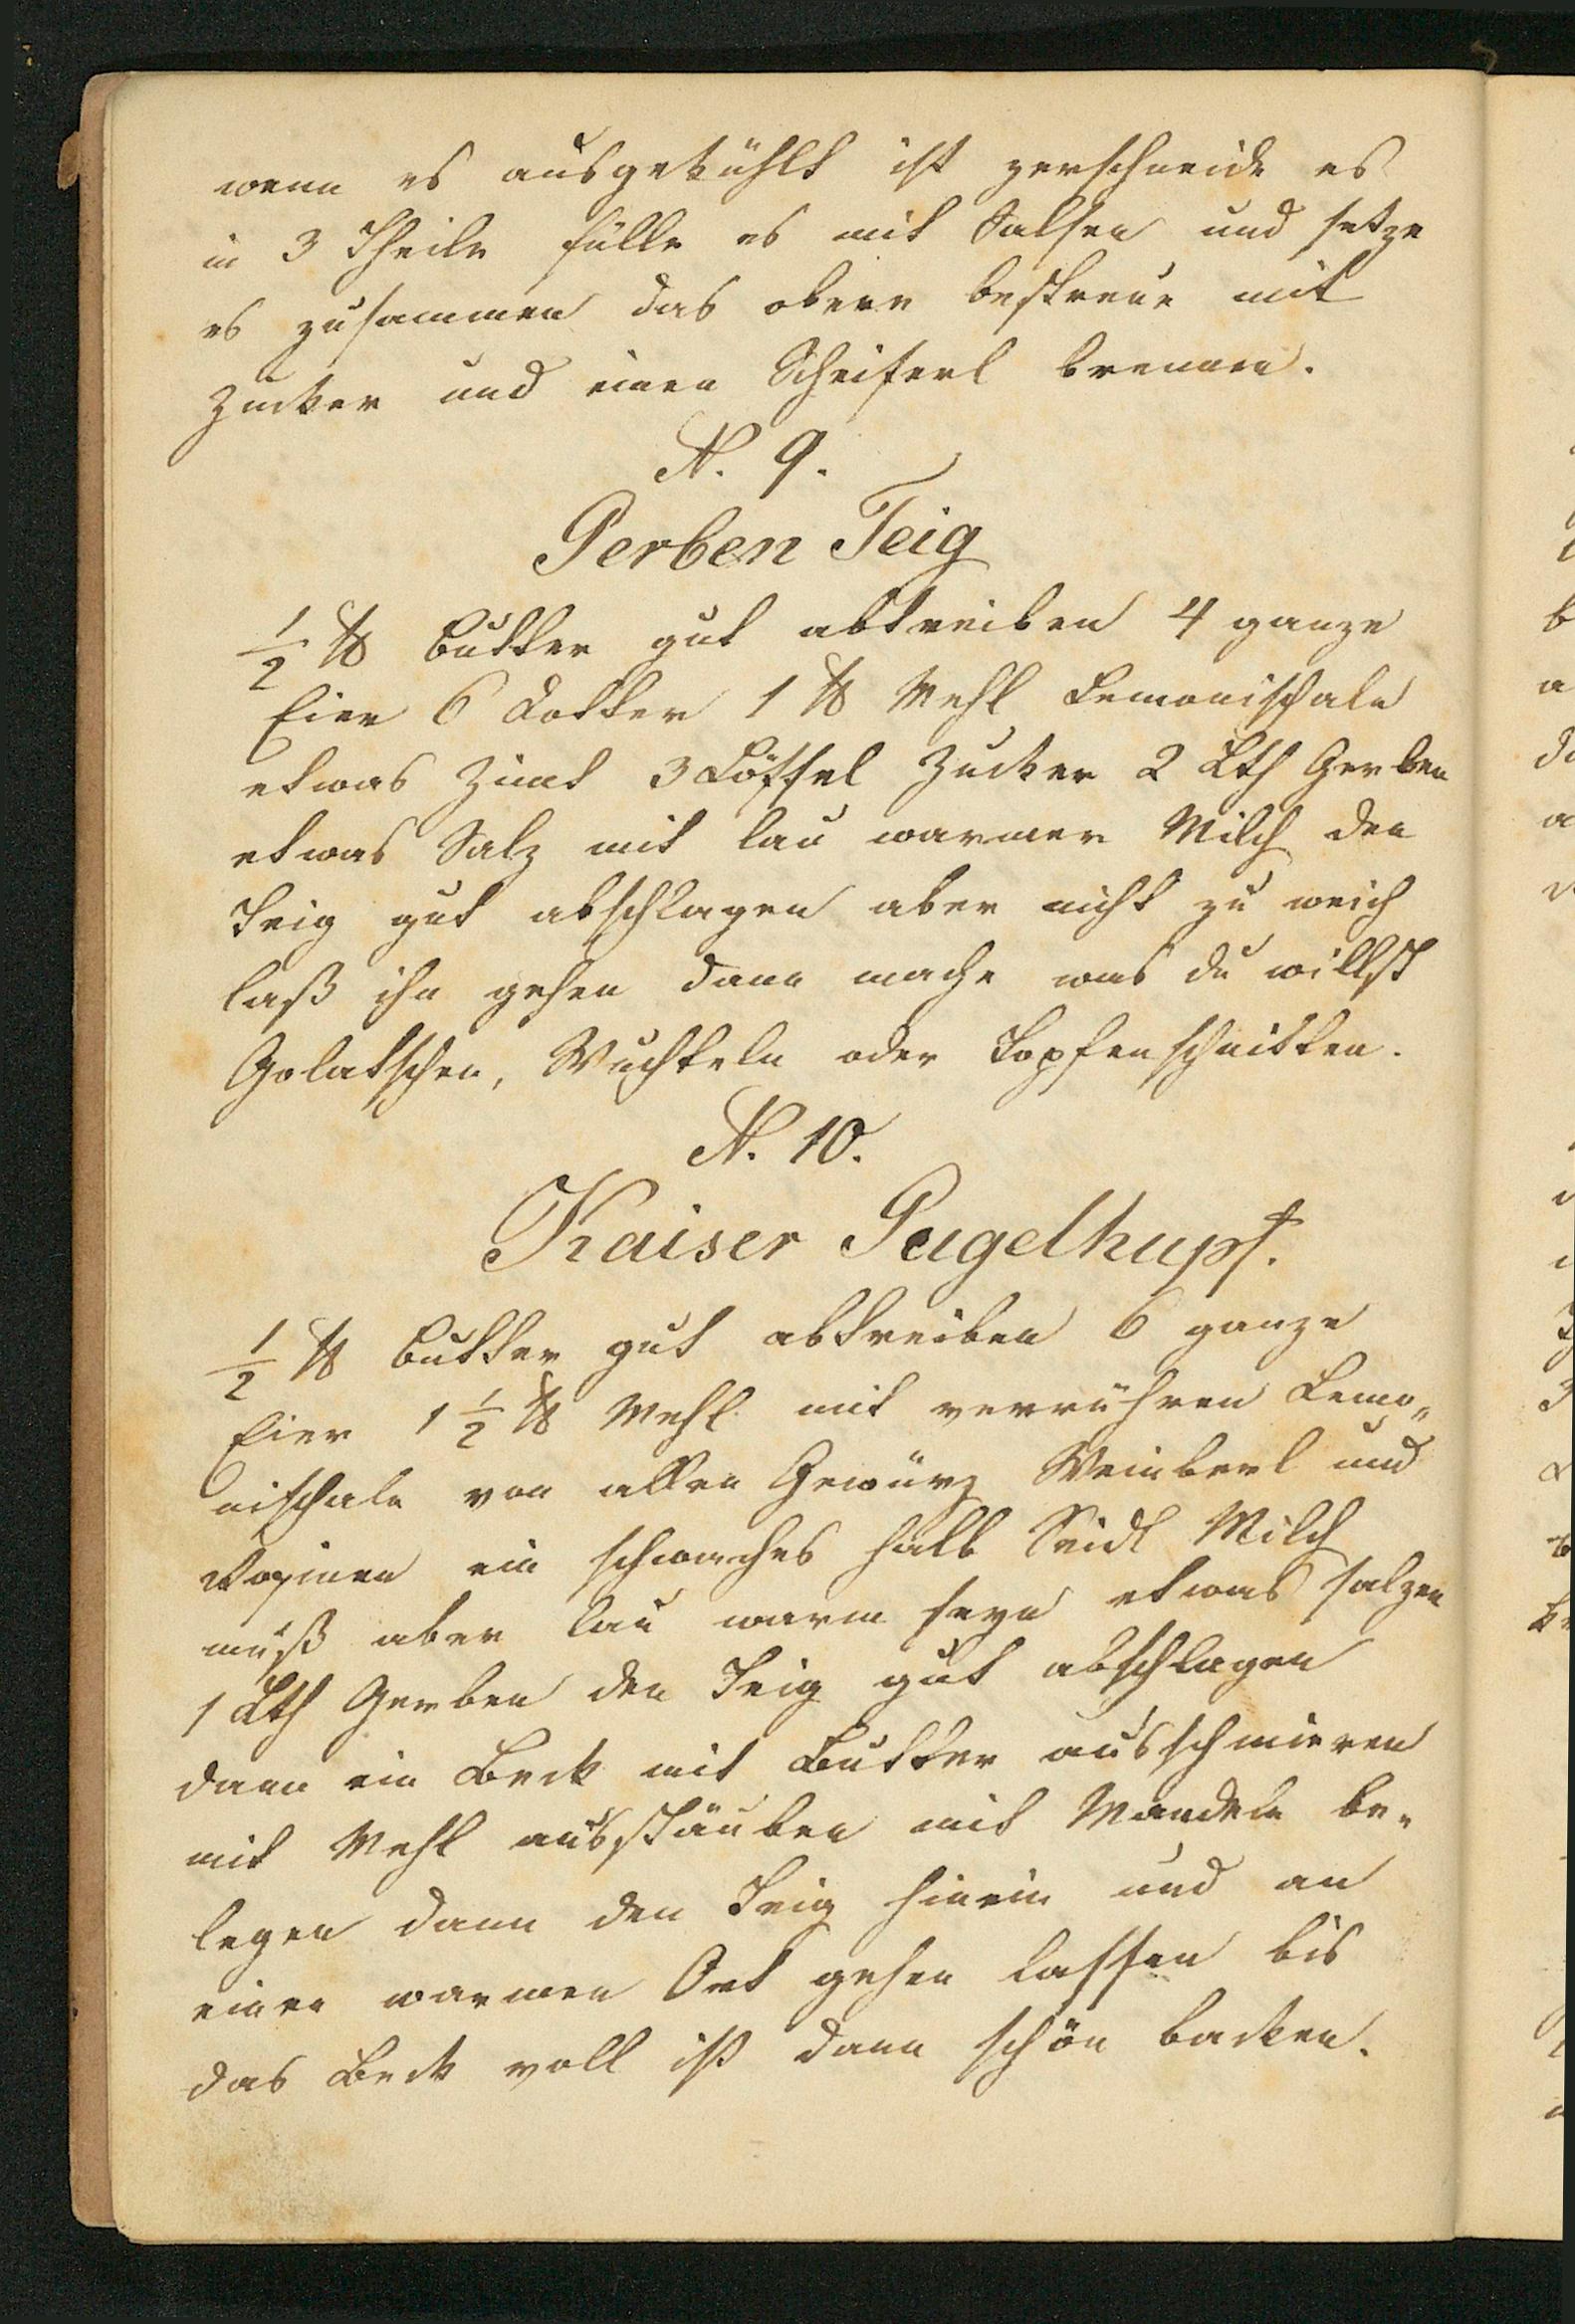 wenn es ausgekühlt ist zerschneide es
in 3 Theile fülle es mit Salsen und setze
es zusammen das obere bestreue mit
Zucker und einen Scheiferl brennen.
N. 9.
Gerben Teig
1/2 ℔ Butter gut abtreiben 4 ganze
Eier 6 Dotter 1 ℔ Mehl Lemonischale
etwas Zimt 3 Löffel Zucker 2 Lth Gerben
etwas Salz mit lau warmer Milch den
Teig gut abschlagen aber nicht zu weich
laß ihn gehen dann mache was du willst
Golatschen, Wuchteln oder Topfenschnitten.
N. 10.
Kaiser Gugelhupf.
1/2 ℔ Butter gut abtreiben 6 ganze
Eier 1 1/2 ℔ Mehl mit verrühren Lemo„
nischale von allen Gewürz Weinberl und
Rosinen ein schwaches halb Seidl Milch
muß aber lau warm seyn etwas salzen
1 Lth Gerben den Teig gut abschlagen
dann ein Beck mit Butter ausschmieren
mit Mehl ausstäuben mit Mandeln be„
legen dann den Teig hinein und an
einen warmen Ort gehen lassen bis
das Beck voll ist dann schön backen.